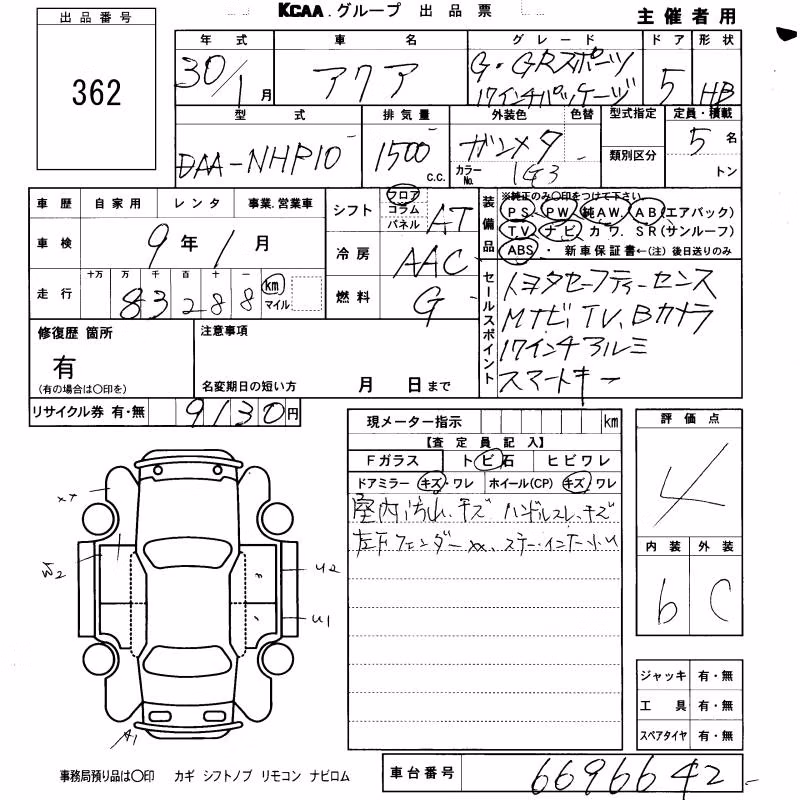 KCAA.グループ 出品票
主催者用
出品番号
362
年式 車名 グレード ドア 形状
30/1月 アクア G・GRスポーツ 17インチパッケージ 5 HB
型式 排気量 外装色 色替 型式指定 定員・積載
DAA-NHP10 1500 c.c. ガンメタ カラーNo. 1G3 類別区分 5名 トン
車歴 自家用 レンタ 事業.営業車
車検 9年1月
走行 十万 万 千 百 十 一
83288 km マイル
シフト フロア コラム パネル AT
冷房 AAC
燃料 G
装備品 ※純正のみ〇印をつけて下さい
PS PW 純AW. AB(エアバック)
TV ナビ カワ. SR(サンルーフ)
ABS ・ 新車保証書←(注)後日送りのみ
セールスポイント
トヨタセーフティーセンス
Mナビ、TV、Bカメラ
17インチアルミ
スマートキー
修復歴 箇所
有
(有の場合は〇印を)
注意事項
名変期日の短い方 月 日まで
リサイクル券 有・無 9130円
現メーター指示 km
【査定員記入】
Fガラス トビ石 ヒビワレ
ドアミラー キズ・ワレ ホイール(CP) キズ・ワレ
室内汚れ、キズ ハンドルスレ、キズ
左Fフェンダーxx、
評価点
4
内装 外装
b C
x+
W2
U2
U1
A1
ジャッキ 有・無
工具 有・無
スペアタイヤ 有・無
事務局預り品は〇印 カギ シフトノブ リモコン ナビロム
車台番号 6696642